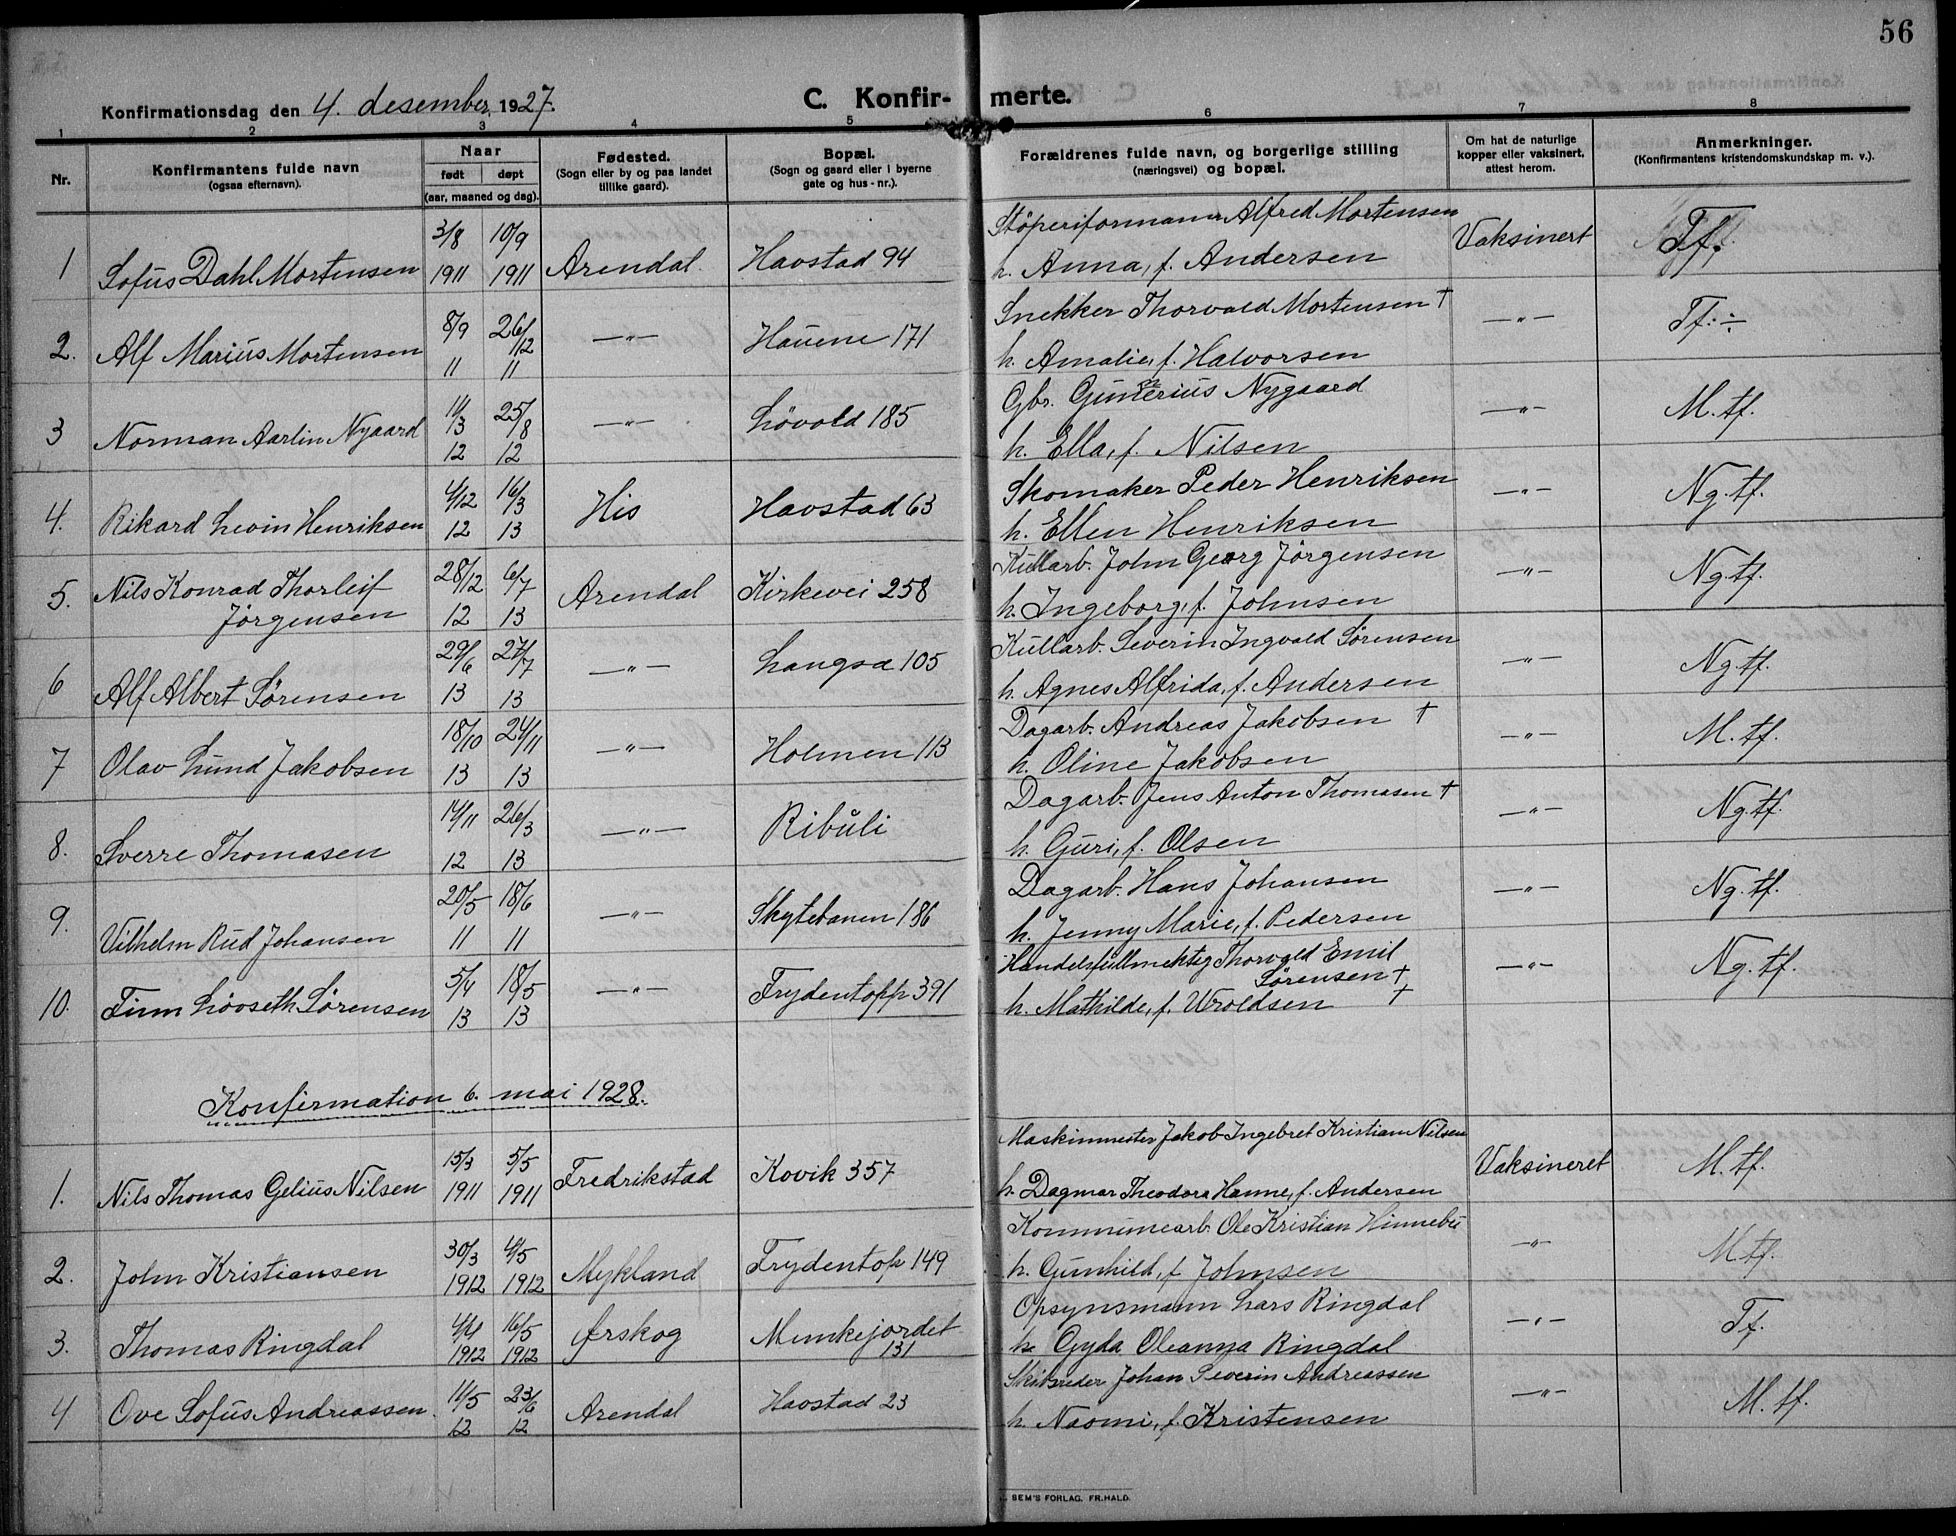 56
Konfirmationsdag den 4. desember 1927.
C. Konfir- merte.
1 2 3 4 5 6 7 8
Nr.
Konfirmantens fulde navn
(ogsaa efternavn).
Naar
født døpt
(aar, maaned og dag).
Fødested.
(Sogn eller by og paa landet
tillike gaard).
Bopæl.
(Sogn og gaard eller i byerne
gate og hus-nr.).
Forældrenes fulde navn, og borgerlige stilling
(næringsvei) og bopæl.
Om hat de naturlige
kopper eller vaksinert,
attest herom.
Anmerkninger.
(Konfirmantens kristendomskundskap m. v.).
3/8 10/9 Støperiformann Alfred Mortensen
1 Sofus Dahl Mortensen 1911 1911 Arendal. Havstad 94 h. Anna, f. Andersen Vaksinert Tf.
8/9 26/12 Snekker Thorvald Mortensen †
2. Alf Marius Mortensen 11 11 —"— Hauene 171 h. Amalie, f. Halvorsen —"— Tf. ÷
11/3 25/8 Gbr. Gunerius Nygaard
3 Norman Aarlin Nyaard 12 12 —"— Løvold 185 h. Ella, f. Nilsen —"— M. tf.
4/12 16/3 Skomaker Peder Henriksen
4. Rikard Levin Henriksen 12 13 His Havstad 63 h. Ellen Henriksen —"— Ng. tf.
28/12 6/7 Kullarb. John Georg Jørgensen
5. Nils Konrad Thorleif Arendal Kirkevei 258 —"— Ng. tf.
Jørgensen 12 13 h. Ingeborg, f. Johnsen
29/6 27/7 Kullarb. Severin Ingvald Sørensen
6 Alf Albert Sørensen 13 13 —"— Langsæ 105 h. Agnes Alfrida, f. Andersen —"— Ng. tf.
18/10 24/11 Dagarb. Andreas Jakobsen †
7 Olav Lund Jakobsen 13 13 —"— Holmen 113 h. Oline Jakobsen —"— M. tf.
14/11 26/3 Dagarb. Jens Anton Thomasen †
8. Sverre Thomasen 12 13 —"— Ribuli h. Guri, f. Olsen —"— Ng. tf.
20/5 18/6 Dagarb. Hans Johansen
9. Vilhelm Rud Johansen 11 11 —"— Skytebanen 186 h. Jenny Marie, f. Pedersen —"— Ng. tf.
5/4 18/5 Handelsfullmektig Thorvald Emil
Sørensen †
10. Finn Løvseth Sørensen 13 13 —"— Frydentopp 391 h. Mathilde, f. Wroldsen † —"— Ng. tf.
Konfirmation 6. mai 1928.
15/3 5/5 Maskinmester Jakob Ingebret Kristian Nilsen
1. Nils Thomas Gelius Nilsen 1911 1911 Fredrikstad Kovik 357 h. Dagmar Theodora Hanne, f. Andersen Vaksineret M. tf.
30/3 4/5 Kommunearb. Ole Kristian Hinnebu
2. John Kristiansen 1912 1912 Mykland Frydentop 149 h. Gunhild, f. Johnsen —"— M. tf.
4/4 16/5 Opsynsmann Lars Ringdal
3. Thomas Ringdal 1912 1912 Ørskog Munkejordet
131 h. Gyda Oleanna Ringdal —"— Tf.
11/5 23/6 Skibsreder Johan Severin Andreassen
4 Ove Sofus Andreassen. 12 12 Arendal Havstad 23 h. Naomi, f. Kristensen —"— M. tf.
SEM'S FORLAG, FR.HALD.